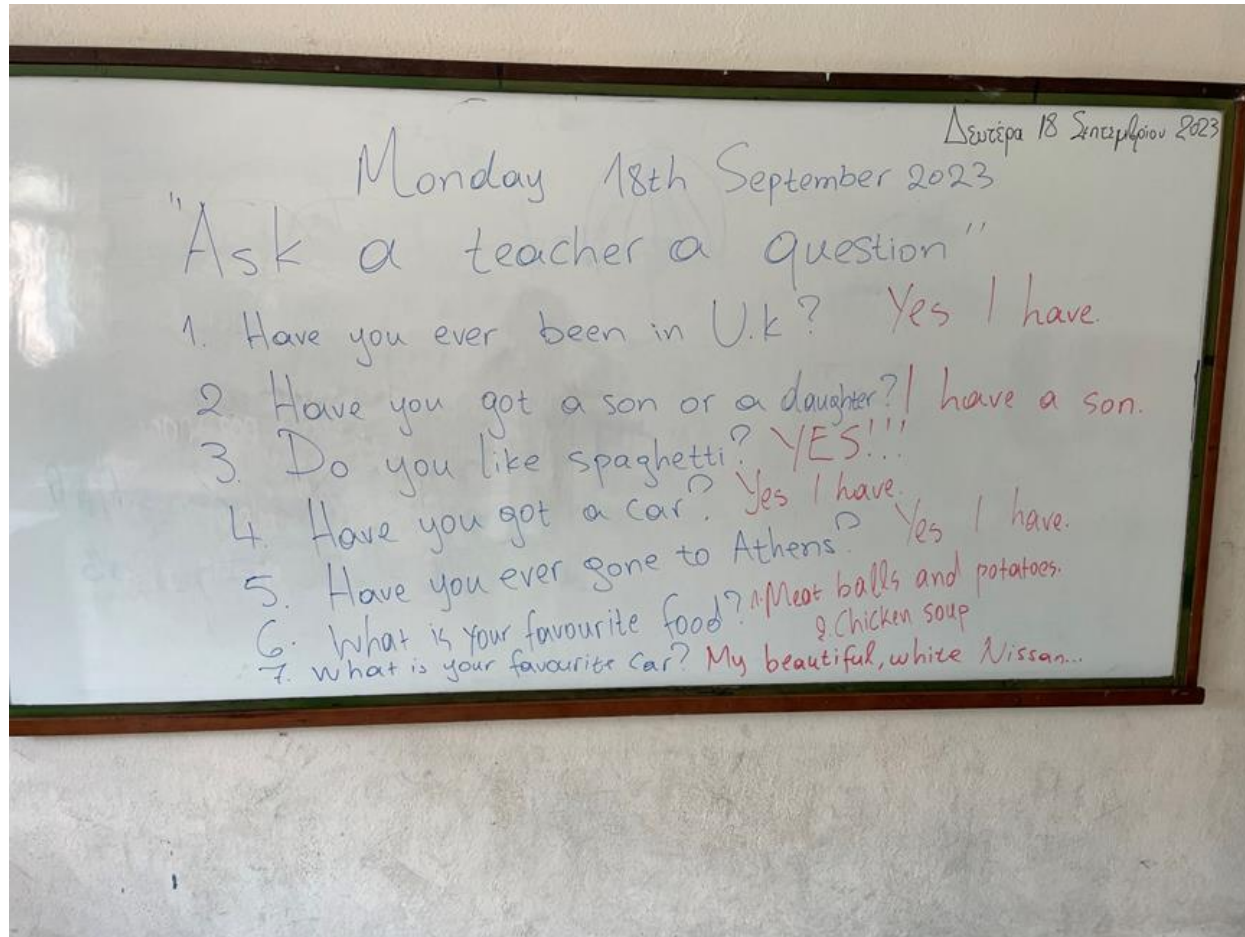 Δευτέρα 18 Σεπτεμβρίου 2023
Monday 18th September 2023
"Ask a teacher a question"
1. Have you ever been in U.k? Yes I have.
2 Have you got a son or a daughter? I have a son.
3. Do you like spaghetti? YES!!!
4. Have you got a car? Yes I have.
5. Have you ever gone to Athens? Yes I have.
6. What is your favourite food? 1. Meat balls and potatoes.
2. Chicken soup
7. What is your favourite car? My beautiful, white Nissan...